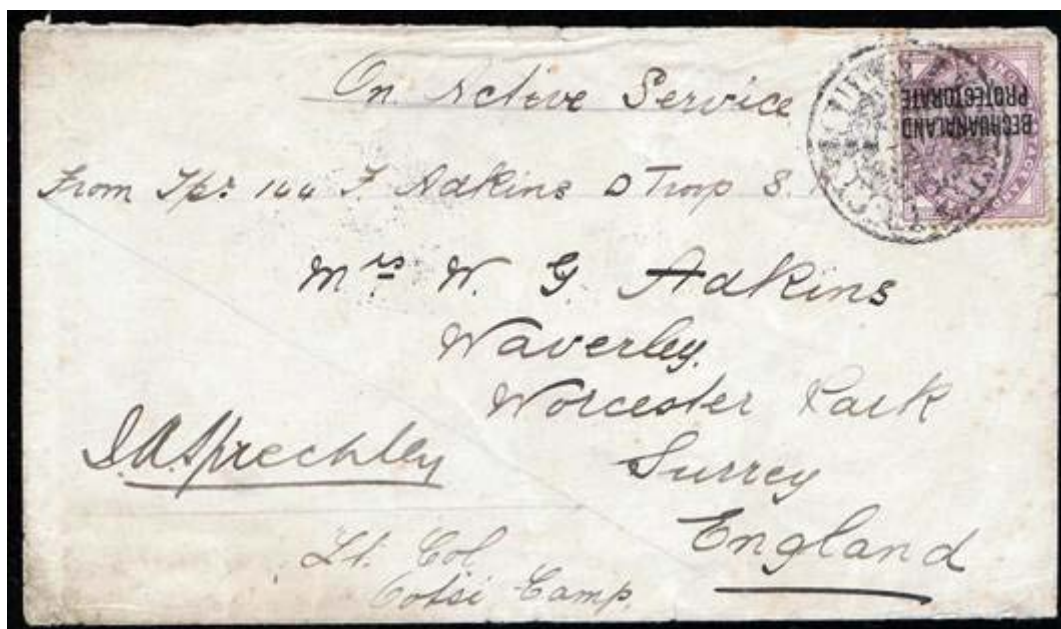 On Active Service
BECHUANALAND
PROTECTORATE
From Tpr 144 F. Adkins D Troop S.
Mrs W. G. Adkins
Waverley.
Worcester Park
Surrey
England
Lt. Col
Camp.